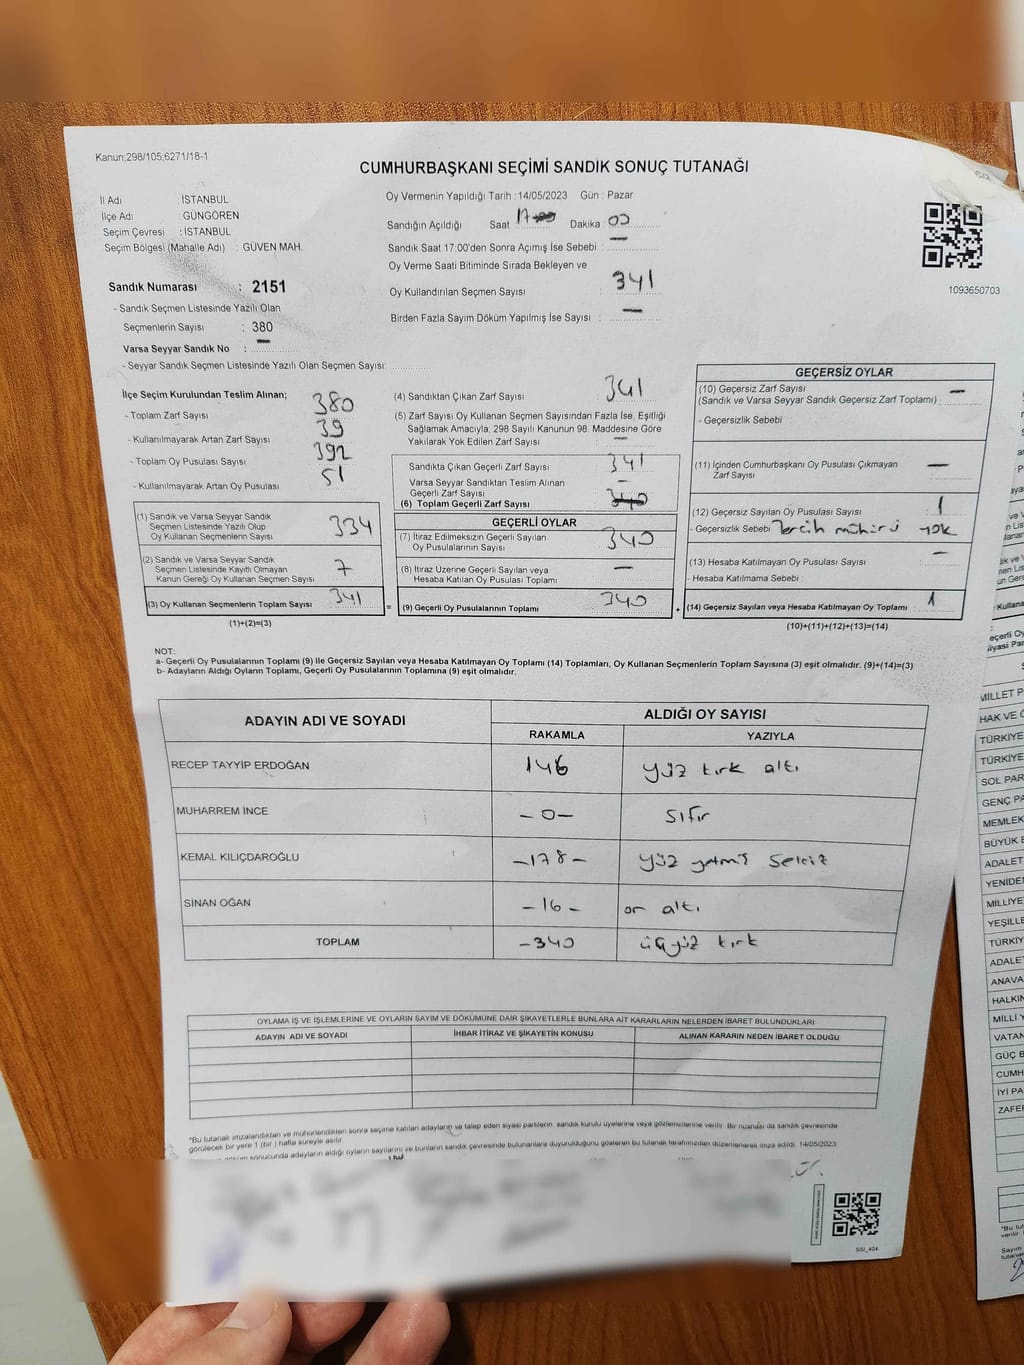 Kanun;298/105;6271/18-1
CUMHURBAŞKANI SEÇİMİ SANDIK SONUÇ TUTANAĞI
İl Adı : İSTANBUL
İlçe Adı : GÜNGÖREN
Seçim Çevresi : İSTANBUL
Seçim Bölgesi (Mahalle Adı) : GÜVEN MAH.
Sandık Numarası : 2151
- Sandık Seçmen Listesinde Yazılı Olan
Seçmenlerin Sayısı : 380
Varsa Seyyar Sandık No : —
- Seyyar Sandık Seçmen Listesinde Yazılı Olan Seçmen Sayısı:
Oy Vermenin Yapıldığı Tarih : 14/05/2023 Gün : Pazar
Sandığın Açıldığı Saat 17 Dakika 00
Sandık Saat 17:00'den Sonra Açımış İse Sebebi : —
Oy Verme Saati Bitiminde Sırada Bekleyen ve
Oy Kullandırılan Seçmen Sayısı : 341
Birden Fazla Sayım Döküm Yapılmış İse Sayısı : —
1093650703
İlçe Seçim Kurulundan Teslim Alınan;
- Toplam Zarf Sayısı 380
- Kullanılmayarak Artan Zarf Sayısı 39
- Toplam Oy Pusulası Sayısı 392
- Kullanılmayarak Artan Oy Pusulası 51
(1) Sandık ve Varsa Seyyar Sandık
Seçmen Listesinde Yazılı Olup
Oy Kullanan Seçmenlerin Sayısı 334
(2) Sandık ve Varsa Seyyar Sandık
Seçmen Listesinde Kayıtlı Olmayan
Kanun Gereği Oy Kullanan Seçmen Sayısı 7
(3) Oy Kullanan Seçmenlerin Toplam Sayısı 341
(1)+(2)=(3)
(4) Sandıktan Çıkan Zarf Sayısı 341
(5) Zarf Sayısı Oy Kullanan Seçmen Sayısından Fazla İse, Eşitliği
Sağlamak Amacıyla; 298 Sayılı Kanunun 98. Maddesine Göre
Yakılarak Yok Edilen Zarf Sayısı : —
Sandıkta Çıkan Geçerli Zarf Sayısı 341
Varsa Seyyar Sandıktan Teslim Alınan
Geçerli Zarf Sayısı —
(6) Toplam Geçerli Zarf Sayısı 340
GEÇERLİ OYLAR
(7) İtiraz Edilmeksizin Geçerli Sayılan
Oy Pusulalarının Sayısı 340
(8) İtiraz Üzerine Geçerli Sayılan veya
Hesaba Katılan Oy Pusulası Toplamı —
= (9) Geçerli Oy Pusulalarının Toplamı 340
GEÇERSİZ OYLAR
(10) Geçersiz Zarf Sayısı
(Sandık ve Varsa Seyyar Sandık Geçersiz Zarf Toplamı) : —
- Geçersizlik Sebebi :
(11) İçinden Cumhurbaşkanı Oy Pusulası Çıkmayan
Zarf Sayısı —
(12) Geçersiz Sayılan Oy Pusulası Sayısı : 1
- Geçersizlik Sebebi : Tercih mührü yok
(13) Hesaba Katılmayan Oy Pusulası Sayısı : —
- Hesaba Katılmama Sebebi :
+ (14) Geçersiz Sayılan veya Hesaba Katılmayan Oy Toplamı 1
(10)+(11)+(12)+(13)=(14)
NOT:
a- Geçerli Oy Pusulalarının Toplamı (9) ile Geçersiz Sayılan veya Hesaba Katılmayan Oy Toplamı (14) Toplamları, Oy Kullanan Seçmenlerin Toplam Sayısına (3) eşit olmalıdır. (9)+(14)=(3)
b- Adayların Aldığı Oyların Toplamı, Geçerli Oy Pusulalarının Toplamına (9) eşit olmalıdır.
ADAYIN ADI VE SOYADI ALDIĞI OY SAYISI
RAKAMLA YAZIYLA
RECEP TAYYİP ERDOĞAN 146 yüz kırk altı
MUHARREM İNCE -0- sıfır
KEMAL KILIÇDAROĞLU -178- yüz yetmiş sekiz
SİNAN OĞAN -16- on altı
TOPLAM -340 üçyüz kırk
OYLAMA İŞ VE İŞLEMLERİNE VE OYLARIN SAYIM VE DÖKÜMÜNE DAİR ŞİKAYETLERLE BUNLARA AİT KARARLARIN NELERDEN İBARET BULUNDUKLARI
ADAYIN ADI VE SOYADI İHBAR İTİRAZ VE ŞİKAYETİN KONUSU ALINAN KARARIN NEDEN İBARET OLDUĞU
*Bu tutanak imzalandıktan ve mühürlendikten sonra seçime katılan adayların ve talep eden siyasi partilerin sandık kurulu üyelerine veya gözlemcilerine verilir. Bir nüshası da sandık çevresinde
görülecek bir yere 1 (bir) hafta süreyle asılır.
döküm sonucunda adayların aldığı oyların sayılarını ve bunların sandık çevresinde bulunanlara duyurulduğunu gösteren bu tutanak tarafımızdan düzenlenerek imza edildi. 14/05/2023
SSI_404
MİLLET
HAK VE
TÜRKİYE
TÜRKİYE
SOL PAR
GENÇ PA
MEMLEK
BÜYÜK
ADALET
YENİDEN
MİLLİYE
YEŞİLLE
TÜRKİY
ADALE
ANAVA
HALKIN
MİLLİ Y
VATAN
GÜÇ B
CUMH
İYİ PA
ZAFER